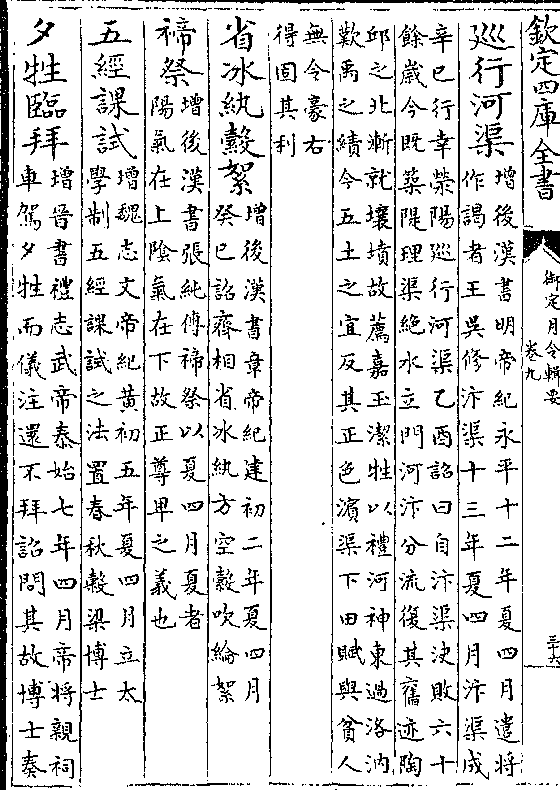 欽定四庫全書
御定月令輯要
卷九
三十六
巡行河渠增後漢書明帝紀永平十二年夏四月遣將
作謁者王吳修汴渠十三年夏四月汴渠成
辛巳行幸滎陽巡行河渠乙酉詔曰自汴渠決敗六十
餘歲今既築隄理渠絶水立門河汴分流復其舊迹陶
邱之北漸就壤墳故薦嘉玉潔牲以禮河神東過洛汭
歎禹之績今五土之宜反其正色濵渠下田賦與貧人
無令豪右
得固其利
省冰紈縠絮增後漢書章帝紀建初二年夏四月
癸巳詔齊相省冰紈方空縠吹綸絮
禘祭增後漢書張純傳禘祭以夏四月夏者
陽氣在上隂氣在下故正尊卑之義也
五經課試增魏志文帝紀黄初五年夏四月立太
學制五經課試之法置春秋穀梁博士
夕牲臨拜增晉書禮志武帝泰始七年四月帝將親祠
車駕夕牲而儀注還不拜詔問其故博士奏